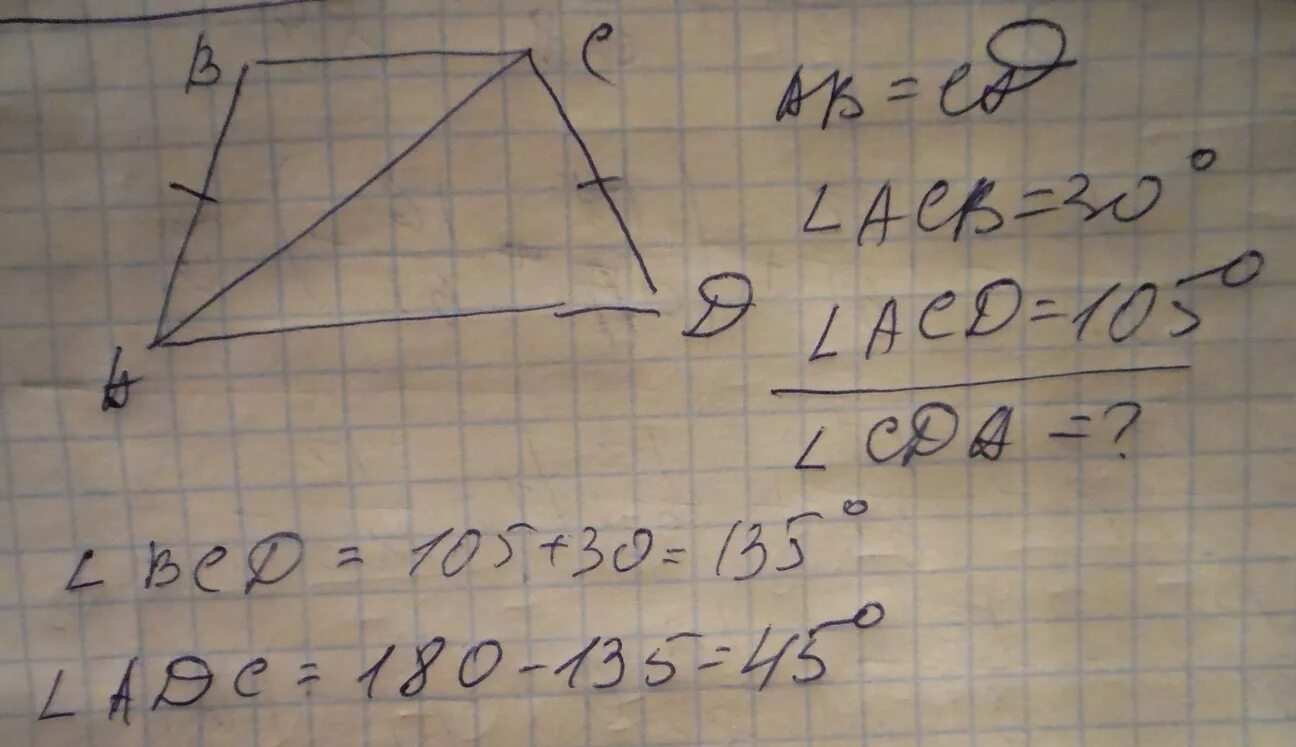 B C
A D
AB = CD
∠ ACB = 30°
∠ ACD = 105°
∠ CDA = ?
∠ BCD = 105 + 30 = 135°
∠ ADC = 180 - 135 = 45°